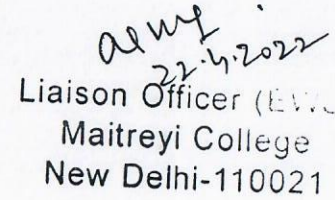 22.4.2022
Liaison Officer (EWS
Maitreyi College
New Delhi-110021